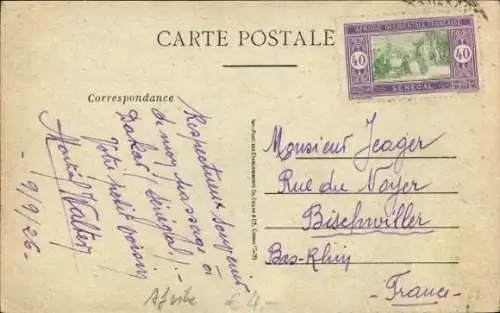 CARTE POSTALE
AFRIQUE OCCIDENTALE FRANÇAISE
40
40
SÉNÉGAL
Correspondance
Respectueux souvenir
de mon passage à
Dakar (Sénégal).-
Votre petit voisin
Walter
- 9/9/26 -
Monsieur Jeager
Rue du Noyer
Bischwiller
Bas-Rhin
- France -
£ 4.-